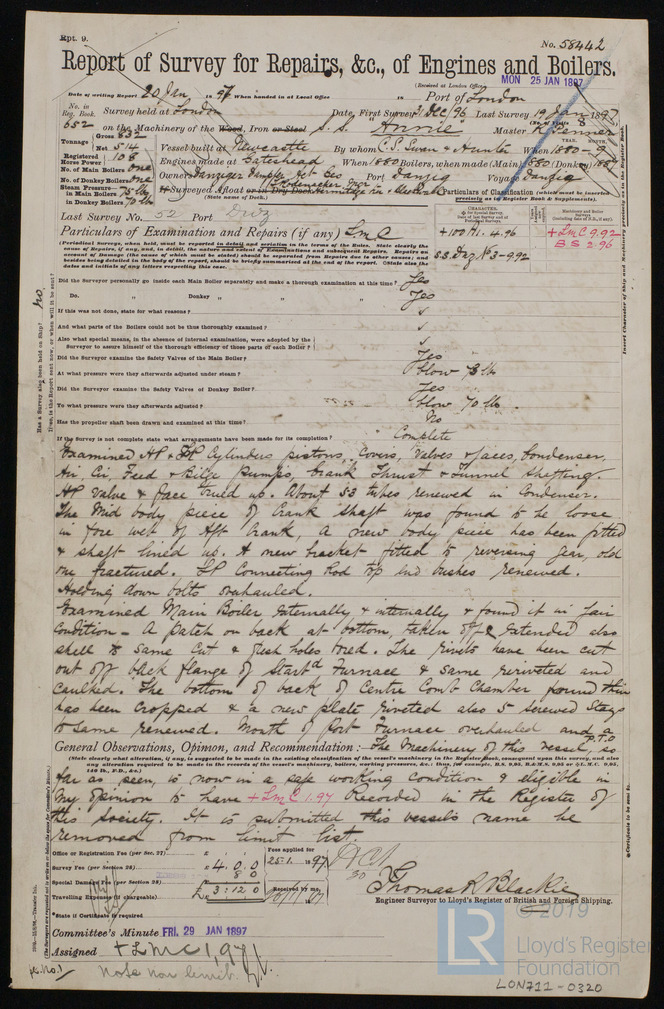 Rpt. 9.
No. 58442
Report of Survey for Repairs, &c., of Engines and Boilers.
(Received at London Office
MON 25 JAN 1897
Date of writing Report 20 Jan 1897 When handed in at Local Office Port of London
No. in Reg. Book. 652
Survey held at London Date, First Survey 3 Dec/96 Last Survey 19 Jan 1897
on the Machinery of the Wood, Iron or Steel S. S. "Annie" Master R. Penner
Tonnage Gross 832 Net 514
Vessel built at Newcastle By whom C. S. Swan & Hunter When 1880
Registered Horse Power 108
Engines made at Gateshead When 1880 Boilers, when made (Main) 1880 (Donkey)
No. of Main Boilers One
No. of Donkey Boilers One
Owners Danziger Dampfer Act Ges Port Danzig Voyage Danzig
Steam Pressure in Main Boilers 75 lb
in Donkey Boilers 70 lb
If Surveyed Afloat or in Dry Dock
(State name of Dock.)
Particulars of Classification (which must be inserted precisely as in Register Book & Supplements).
Last Survey No. 52 Port Dwz
Particulars of Examination and Repairs (if any) LMC
+100A1. 4.96
S.S. Daz No 3-9.92
+LMC 9.92
BS 2.96
Did the Surveyor personally go inside each Main Boiler separately and make a thorough examination at this time? Yes
Do. " Donkey " " " Yes
If this was not done, state for what reasons?
And what parts of the Boilers could not be thus thoroughly examined?
Also what special means, in the absence of internal examination, were adopted by the Surveyor to assure himself of the thorough efficiency of those parts of each Boiler?
Did the Surveyor examine the Safety Valves of the Main Boiler? Yes
At what pressure were they afterwards adjusted under steam? blow
Did the Surveyor examine the Safety Valves of Donkey Boiler? Yes
To what pressure were they afterwards adjusted? blow 70 lb.
Has the propeller shaft been drawn and examined at this time? No
If the Survey is not complete state what arrangements have been made for its completion? Complete
Examined HP & LP Cylinders pistons, Covers, Valves & faces, Condenser,
Air, Cir, Feed & Bilge pumps, Crank Thrust & Tunnel Shafting.
HP Valve & face trued up. About 53 tubes renewed in Condenser.
The Mid body piece of Crank Shaft was found to be loose
in fore web of Aft Crank, a new body piece has been fitted
& shaft lined up. A new bracket fitted to reversing gear, old
one fractured. LP Connecting Rod top end bushes renewed.
Holding down bolts overhauled.
Examined Main Boiler externally & internally & found it in fair
condition - A patch on back at bottom, taken off & extended also
shell to same cut & fresh holes bored. The rivets have been cut
out off back flange of Starbd Furnace & same reriveted and
caulked. The bottom of back of Centre Comb Chamber found thin
has been cropped & a new plate riveted also 5 screwed Stays
to same renewed. Mouth of Port Furnace overhauled and a
P.T.O
General Observations, Opinion, and Recommendation :— The Machinery of this vessel, so
far as seen, is now in a safe working condition & eligible in
my opinion to have +LMC 1.97 Recorded in the Register of
this Society. It is submitted this vessel's name be
removed from limit list.
Office or Registration Fee (per Sec. 27)...
Survey Fee (per Section 28)... £ 4 . 0 . 0
Special Damage Fee (per Section 28) 8 0
Travelling Expenses (if chargeable) £ 3 : 12 . 0
Fees applied for 25.1.1897
Received by me,
Thomas R Blackie
Engineer Surveyor to Lloyd's Register of British and Foreign Shipping.
*State if Certificate is required
Committee's Minute FRI. 29 JAN 1897
Assigned +LMC 1,97
Note non limit.
© 2019
LR
Lloyd's Register Foundation
LON711-0320